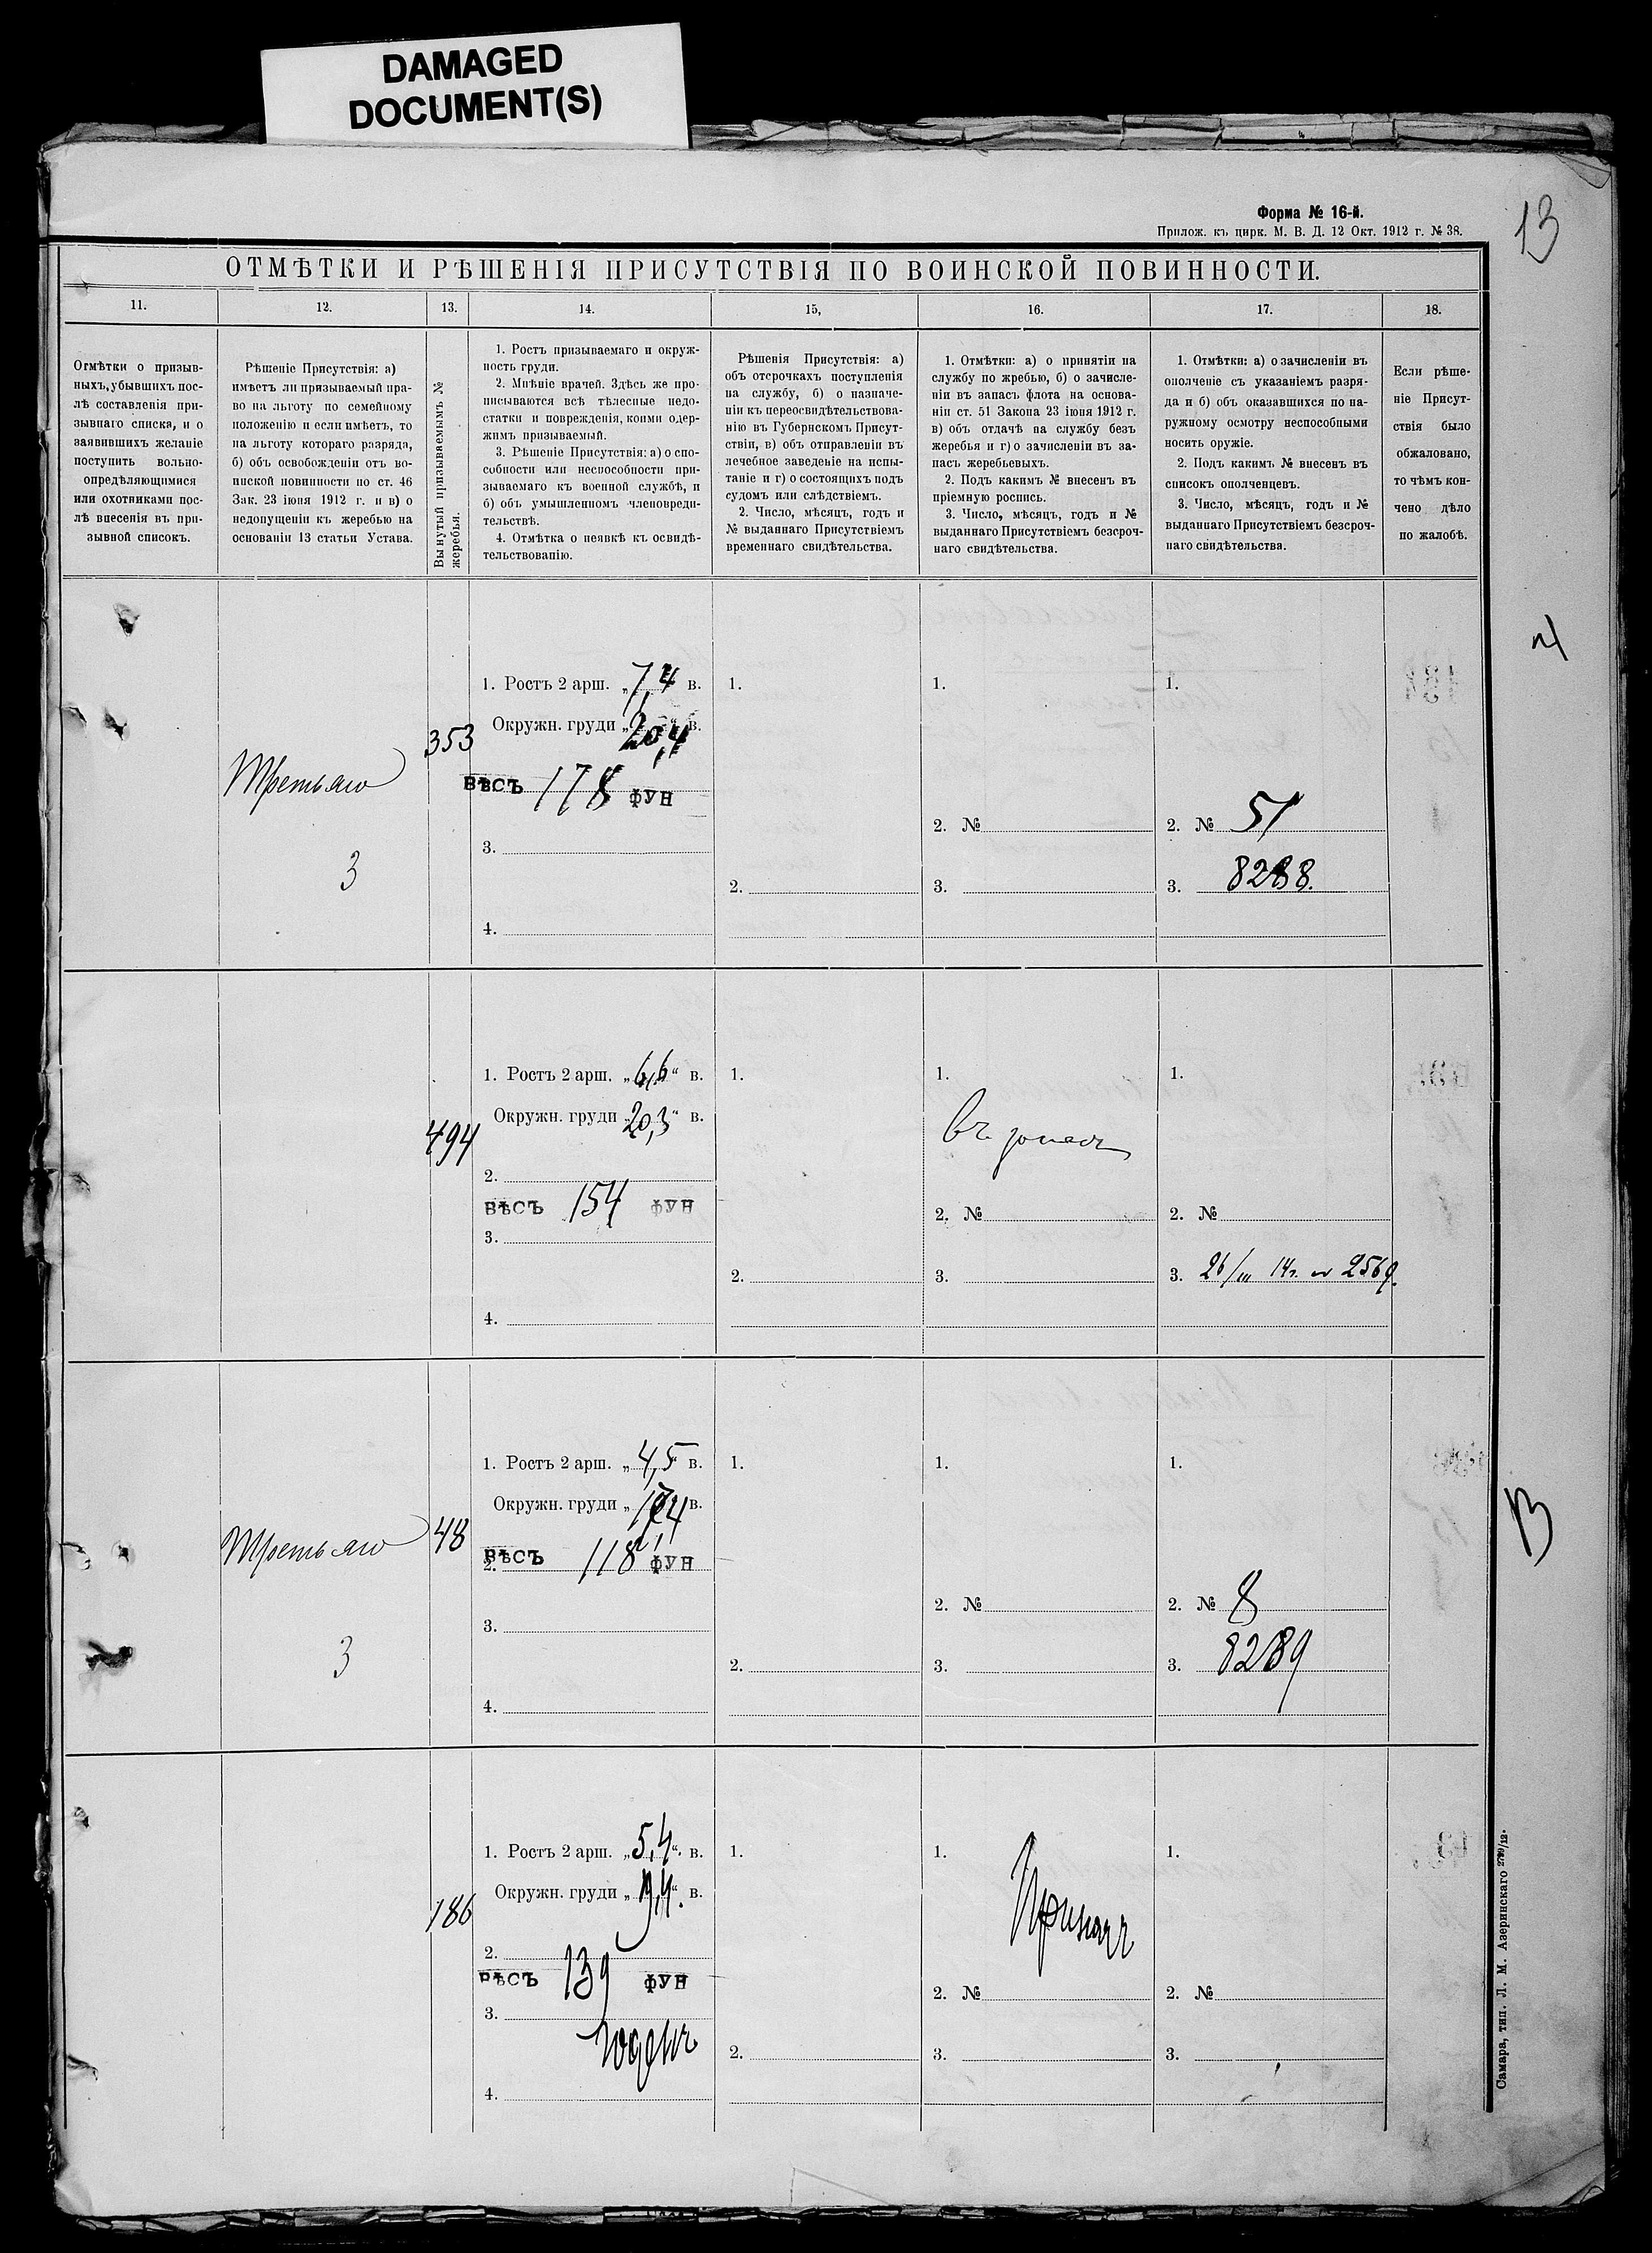 DAMAGED
DOCUMENT(S)
13
Форма № 16-й.
Прилож. къ цирк. М. В. Д. 12 Окт. 1912 г. № 38.
ОТМѢТКИ И РѢШЕНІЯ ПРИСУТСТВІЯ ПО ВОИНСКОЙ ПОВИННОСТИ.
11.
12.
13.
14.
15,
16.
17.
18.
Отмѣтки о призыв-
ныхъ, убывшихъ пос-
лѣ составленія при-
зывнаго списка, и о
заявившихъ желаніе
поступить вольно-
опредѣляющимися
или охотниками пос-
лѣ внесенія въ при-
зывной списокъ.
Рѣшеніе Присутствія: а)
имѣетъ ли призываемый пра-
во на льготу по семейному
положенію и если имѣетъ, то
на льготу котораго разряда,
б) объ освобожденіи отъ во-
инской повинности по ст. 46
Зак. 23 іюня 1912 г. и в) о
недопущеніи къ жеребью на
основаніи 13 статьи Устава.
Вынутый призываемымъ №
жеребья.
1. Ростъ призываемаго и окруж-
ность груди.
2. Мнѣніе врачей. Здѣсь же про-
писываются всѣ тѣлесные недо-
статки и поврежденія, коими одер-
жимъ призываемый.
3. Рѣшеніе Присутствія: а) о спо-
собности или неспособности при-
зываемаго къ военной службѣ, и
б) объ умышленномъ членовреди-
тельствѣ.
4. Отмѣтка о неявкѣ къ освидѣ-
тельствованію.
Рѣшенія Присутствія: а)
объ отсрочкахъ поступленія
на службу, б) о назначе-
ніи къ переосвидѣтельствова-
нію въ Губернскомъ Присут-
ствіи, в) объ отправленіи въ
лечебное заведеніе на испы-
таніе и г) о состоящихъ подъ
судомъ или слѣдствіемъ.
2. Число, мѣсяцъ, годъ и
№ выданнаго Присутствіемъ
временнаго свидѣтельства.
1. Отмѣтки: а) о принятіи на
службу по жребью, б) о зачисле-
ніи въ запасъ флота на основа-
ніи ст. 51 Закона 23 іюня 1912 г.
в) объ отдачѣ на службу безъ
жеребья и г) о зачисленіи въ за-
пасъ жеребьевыхъ.
2. Подъ какимъ № внесенъ въ
пріемную роспись.
3. Число, мѣсяцъ, годъ и №
выданнаго Присутствіемъ безсроч-
наго свидѣтельства.
1. Отмѣтки: а) о зачисленіи въ
ополченіе съ указаніемъ разря-
да и б) объ оказавшихся по на-
ружному осмотру неспособными
носить оружіе.
2. Подъ какимъ № внесенъ въ
списокъ ополченцевъ.
3. Число, мѣсяцъ, годъ и №
выданнаго Присутствіемъ безсроч-
наго свидѣтельства.
Если рѣше-
ніе Присут-
ствія было
обжаловано,
то чѣмъ кон-
чено дѣло
по жалобѣ.
1. Ростъ 2 арш. „7,4 в. 1. 1. 1.
Окружн. груди „20,4 в.
353
Третьяго
ВѢСЪ 178 ФУН
2. № 2. № 51
3
3.
2. 3. 3. 8288.
4.
1. Ростъ 2 арш. „6,6“ в. 1. 1. 1.
Окружн. груди „20,3“ в.
494
въ
2.
ВѢСЪ 154 ФУН
2. № 2. №
3.
2. 3. 3. 26/III 14г. 2569.
4.
1. Ростъ 2 арш. „4,5 в. 1. 1. 1.
Окружн. груди „ в.
Третьяго
48
ВѢСЪ
2. 118 ФУН
2. № 2. № 8
3
3.
2. 3. 3. 8289
4.
1. Ростъ 2 арш. „5,4“. в. 1. 1. 1.
Окружн. груди „19,4“. в.
186
Принятъ
2.
ВѢСЪ 139 ФУН
2. № 2. №
3.
Годенъ
2. 3. 3.
4.
Самара, тип. Л. М. Азеринскаго 2789/12.